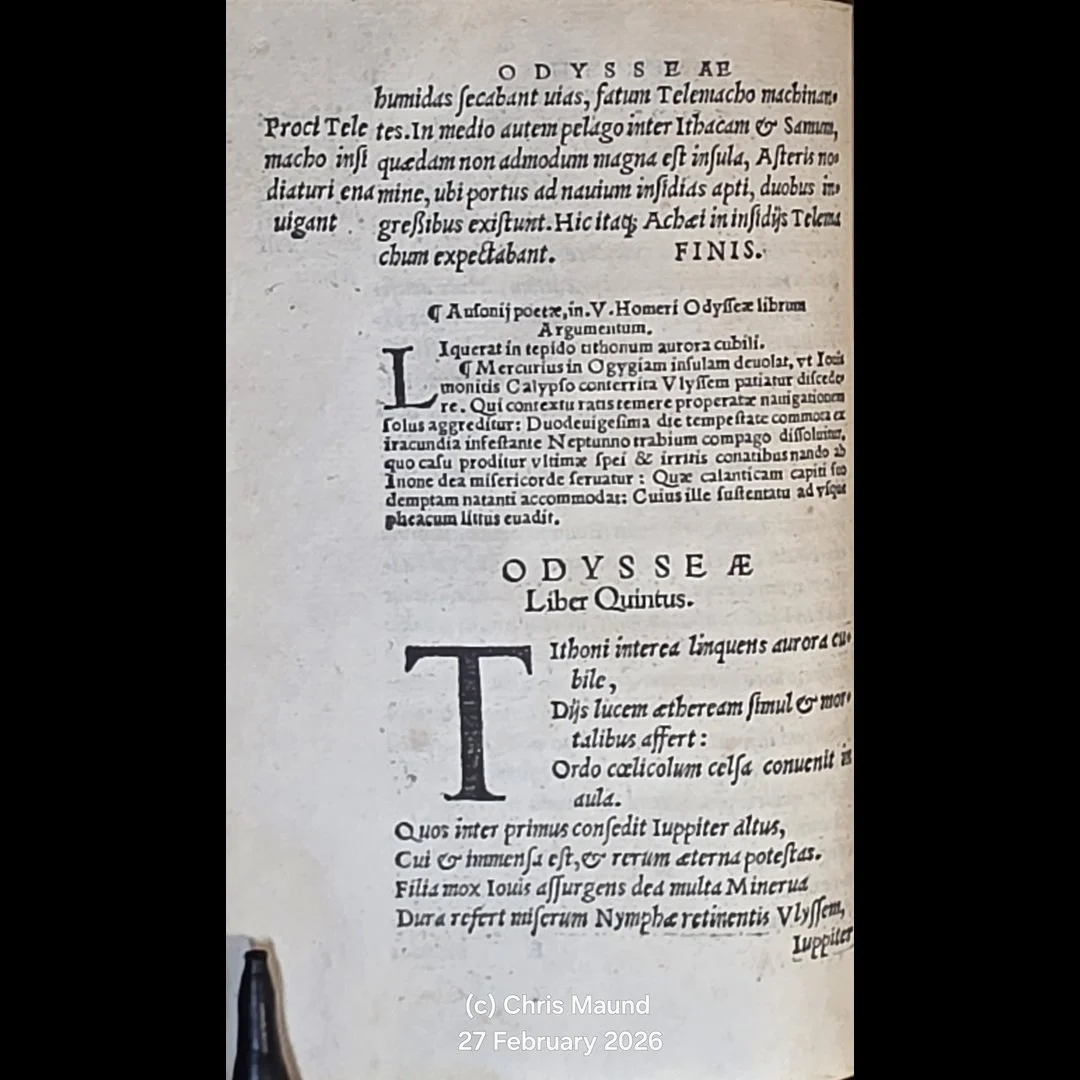 ODYSSEAE
humidas ſecabant uias, fatum Telemacho machinan-
tes. In medio autem pelago inter Ithacam & Samum,
quædam non admodum magna eſt inſula, Aſteris no-
mine, ubi portus ad nauium inſidias apti, duobus in-
greßibus exiſtunt. Hic itaq; Achæi in inſidijs Telema
chum expectabant. FINIS.
Proci Tele
macho inſi
diaturi ena
uigant
¶ Auſonij poetæ, in. V. Homeri Odyſſeæ librum
Argumentum.
LIquerat in tepido tithonum aurora cubili.
¶ Mercurius in Ogygiam inſulam deuolat, vt Iouis
monitis Calypſo conterrita Vlyſſem patiatur diſcede
re. Qui contextu ratis temere properatæ nauigationem
ſolus aggreditur: Duodeuigeſima die tempeſtate commota ex
iracundia infeſtante Neptunno trabium compago diſſoluitur,
quo caſu proditur vltimæ ſpei & irritis conatibus nando ab
Inone dea miſericorde ſeruatur : Quæ calanticam capiti ſuo
demptam natanti accommodat: Cuius ille ſuſtentatu ad vſque
pheacum littus euadit.
ODYSSEÆ
Liber Quintus.
TIthoni interea linquens aurora cu-
bile,
Dijs lucem ætheream ſimul & mor-
talibus affert:
Ordo cœlicolum celſa conuenit in
aula.
Quos inter primus conſedit Iuppiter altus,
Cui & immenſa eſt, & rerum æterna poteſtas.
Filia mox Iouis aſſurgens dea multa Minerua
Dura refert miſerum Nymphæ retinentis Vlyſſem,
Iuppiter
(c) Chris Maund
27 February 2026